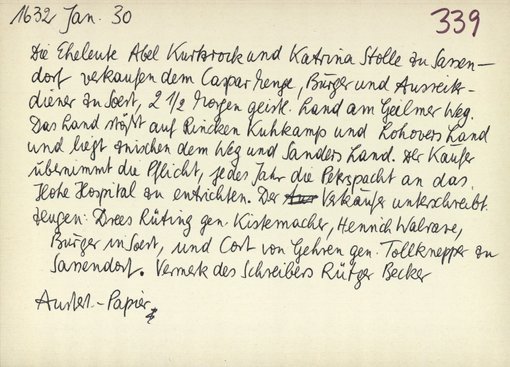 1632 Jan. 30
339
Die Eheleute Abel Kurtzrock und Katrina Stolle zu Sassen-
dorf verkaufen dem Caspar Menge, Bürger und Ausreit-
diener zu Soest, 2 1/2 Morgen geistl. Land am Geilmer Weg.
Das Land stößt auf Rincken Kuhkamp und Lohovers Land
und liegt zwischen dem Weg und Sanders Land. Der Käufer
übernimmt die Pflicht, jedes Jahr die Petrspacht an das
Hohe Hospital zu entrichten. Der Verkäufer unterschreibt.
Zeugen: Drees Rüting gen. Kistemacher, Henrich Walrave,
Bürger in Soest, und Cort von Gehren gen. Tollknepper zu
Sassendorf. Vermerk des Schreibers Rütger Becker
Papier